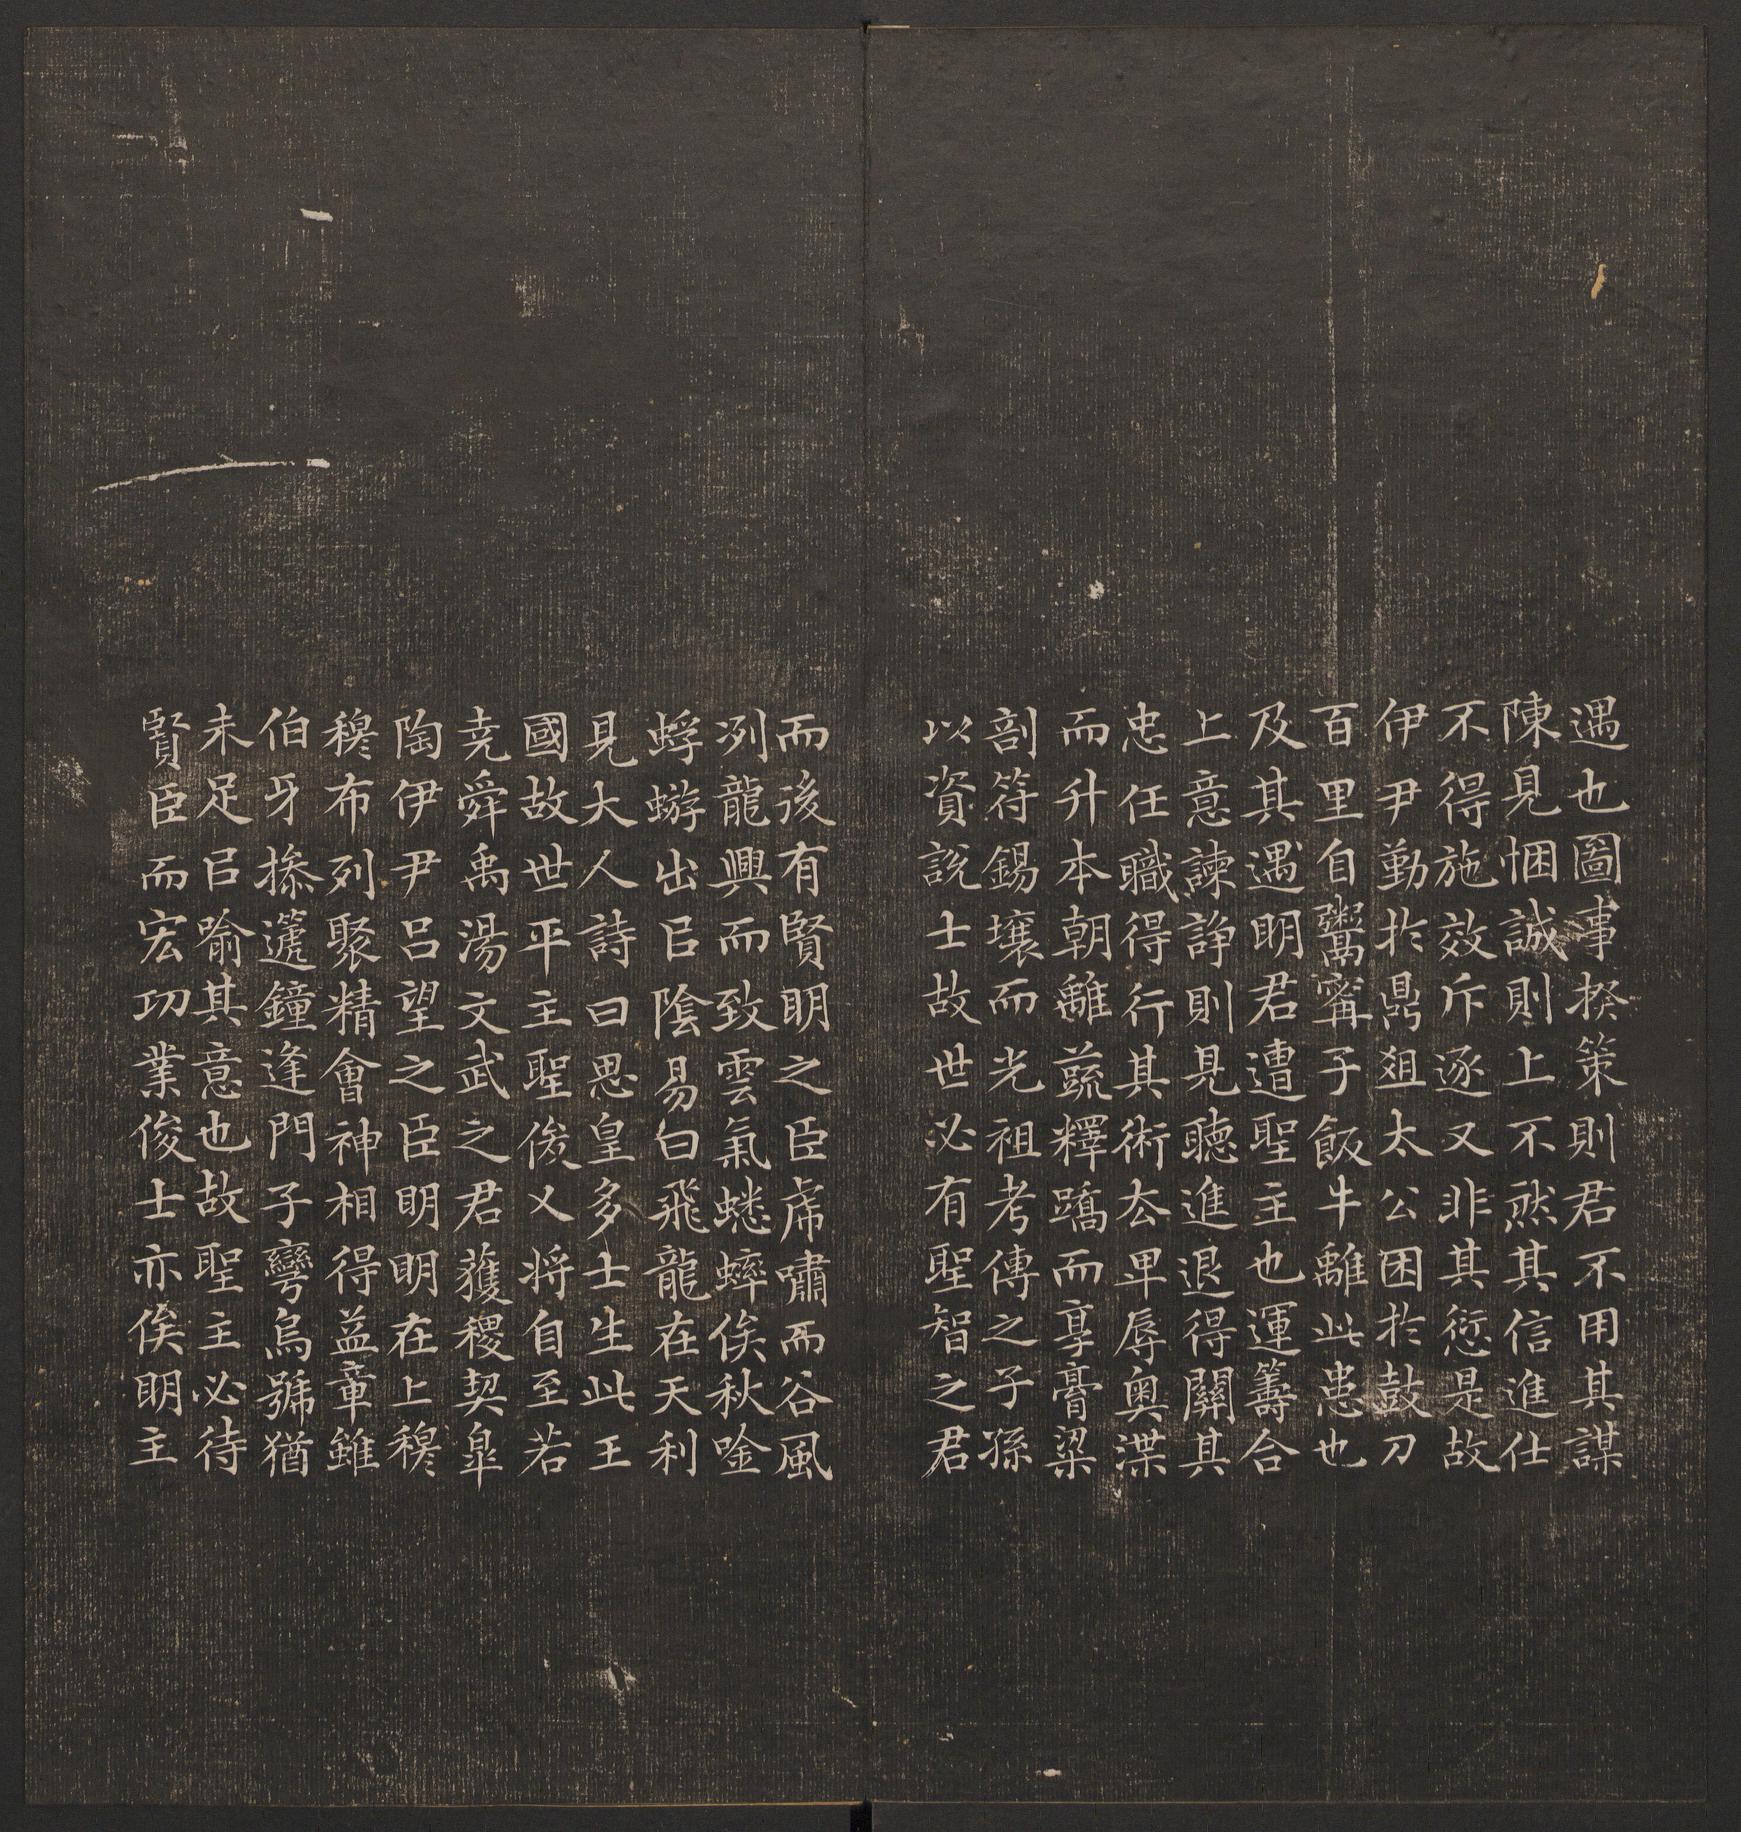 遇也圖事揆策則君不用其謀
陳見悃誠則上不然其信進仕
不得施效斥逐又非其愆是故
伊尹勤於鼎俎太公困於鼓刀
百里自鬻甯子飯牛離此患也
及其遇明君遭聖主也運籌合
上意諫諍則見聽進退得關其
忠任職得行其術去卑辱奧渫
而升本朝離蔬釋蹻而享膏粱
剖符錫壤而光祖考傳之子孫
以資說士故世必有聖智之君
而後有賢明之臣虎嘯而谷風
冽龍興而致雲氣蟋蟀俟秋唫
蜉蝣出㠯陰易曰飛龍在天利
見大人詩曰思皇多士生此王
國故世平主聖俊乂将自至若
堯舜禹湯文武之君獲稷契皐
陶伊尹呂望之臣明明在上穆
穆布列聚精會神相得益章雖
伯牙操籧鐘逢門子彎烏號猶
未足㠯喻其意也故聖主必待
賢臣而宏功業俊士亦俟明主